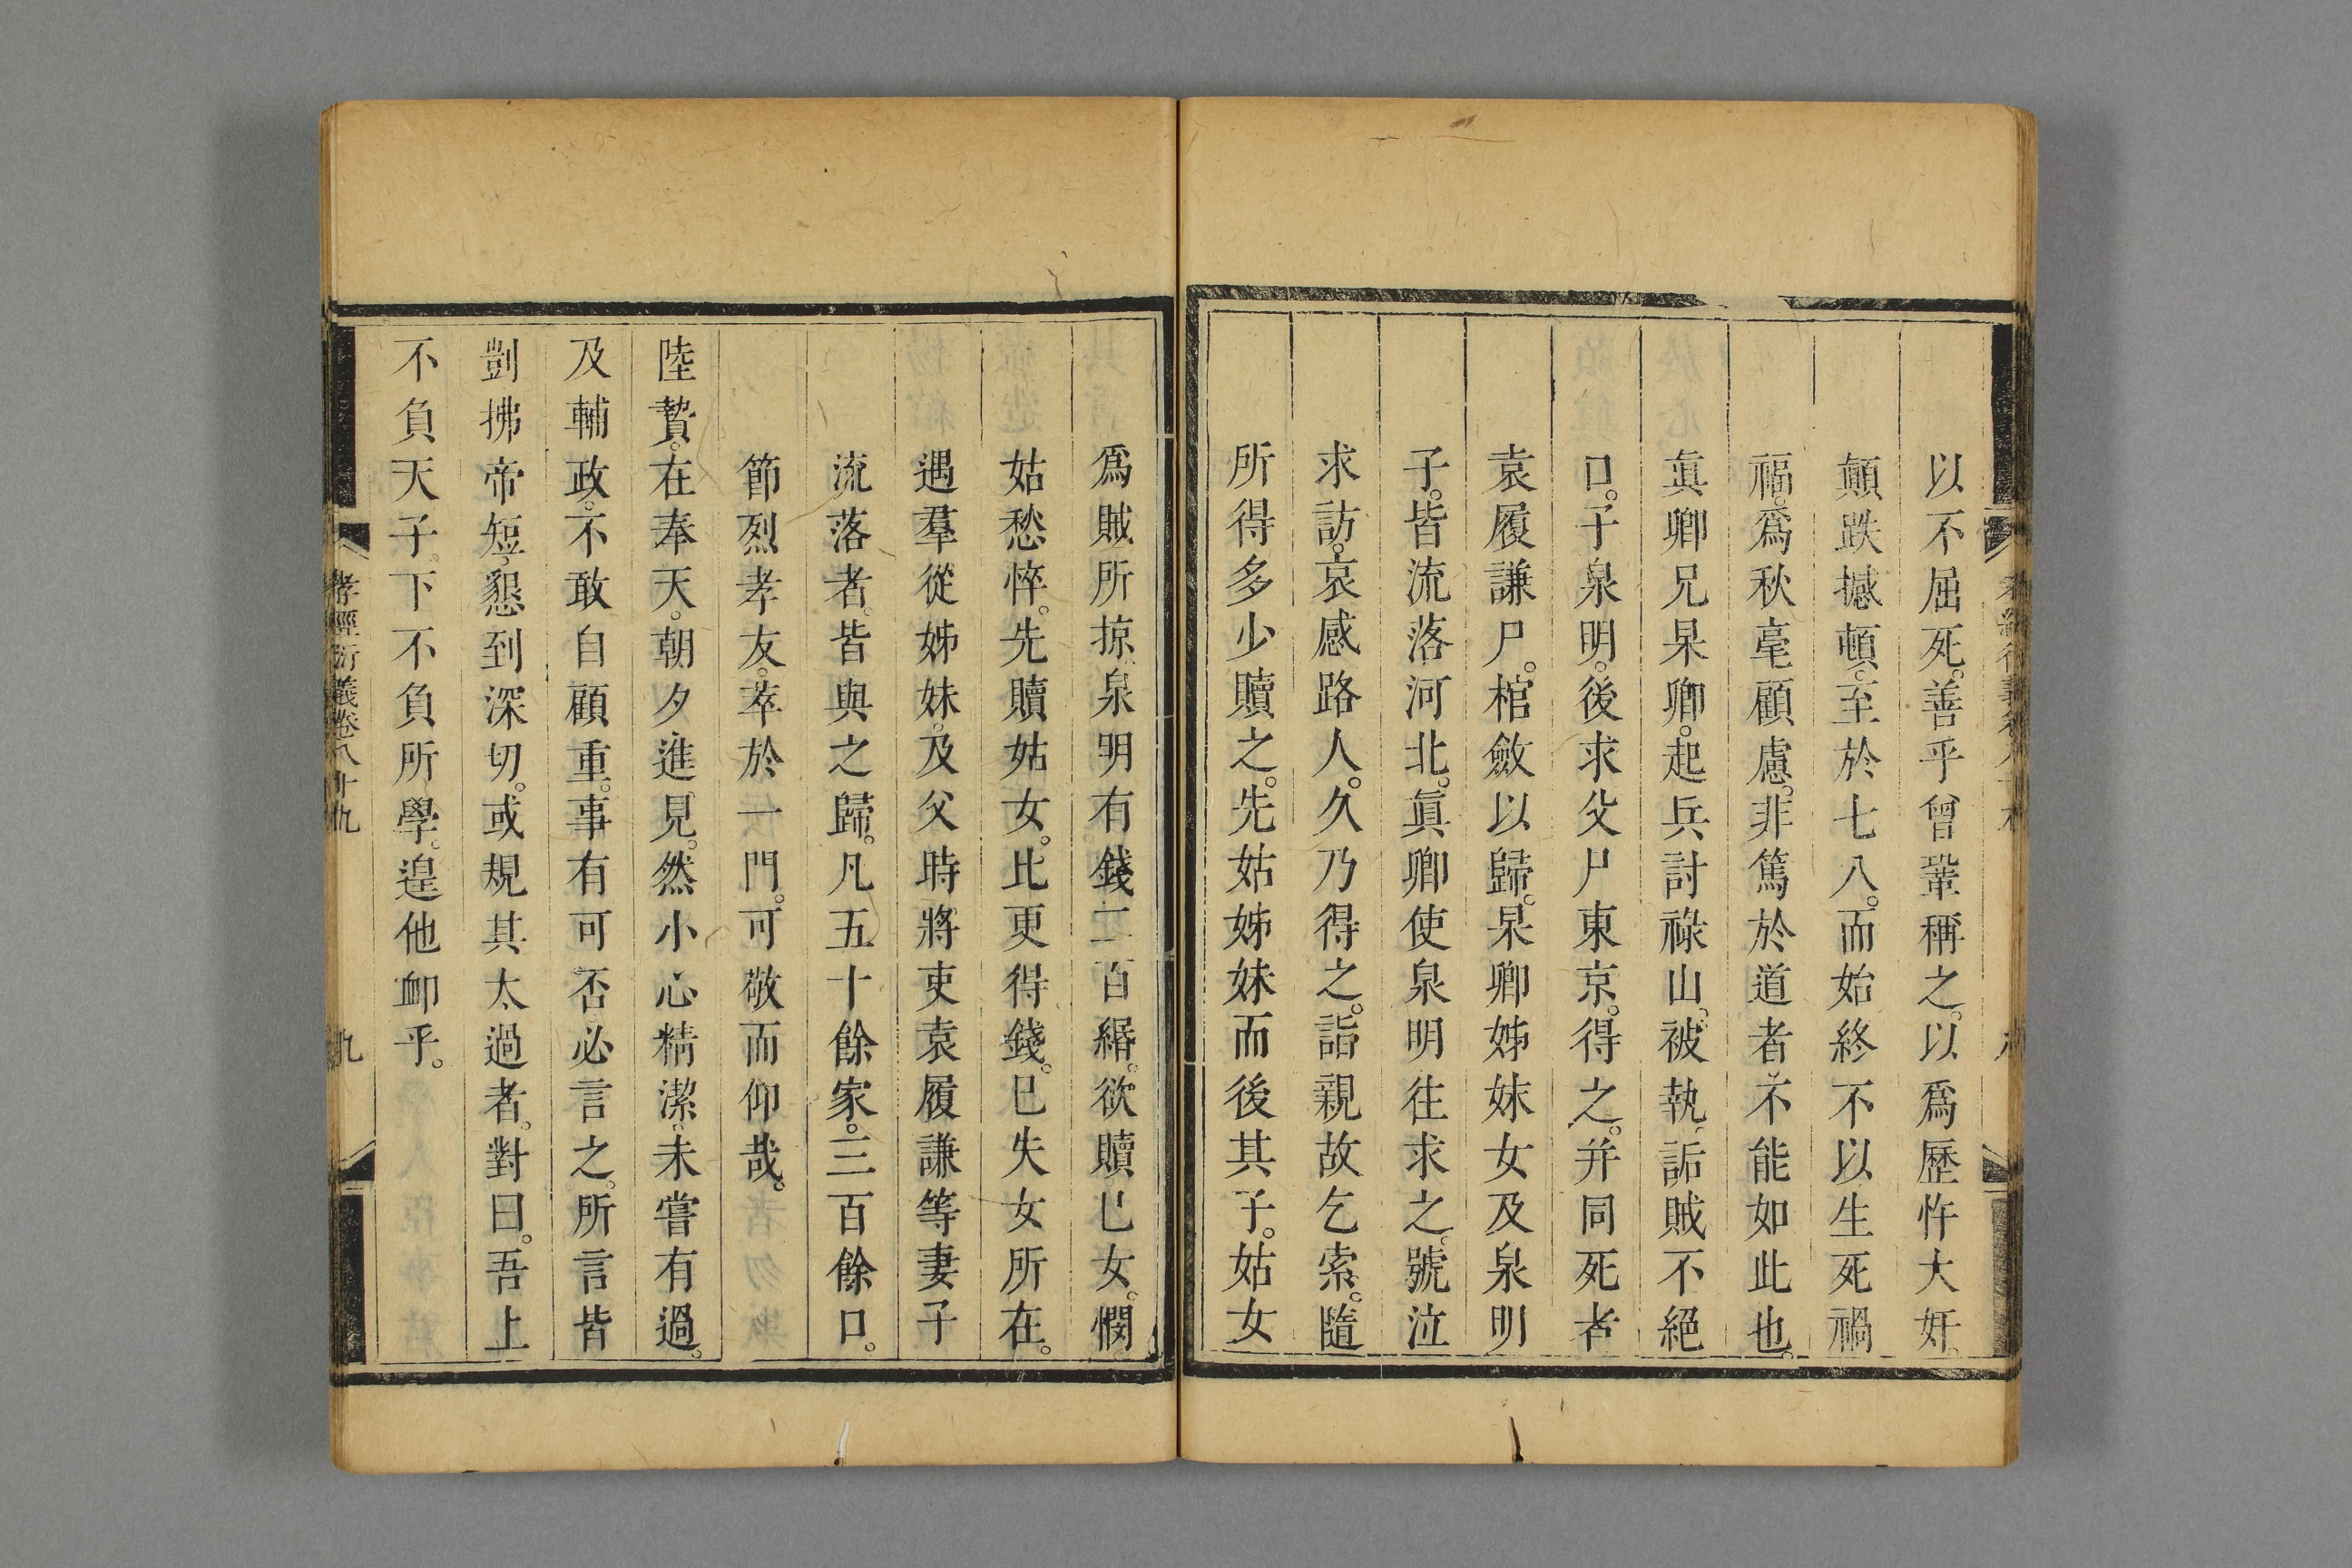 以不屈死。善乎曾鞏稱之。以爲歷忤大奸。
顛跌撼頓。至於七八。而始終不以生死禍
福。爲秋毫顧慮。非篤於道者。不能如此也。
眞卿兄杲卿。起兵討祿山。被執。詬賊不絕
口。子泉明。後求父尸東京。得之。并同死者
袁履謙尸。棺斂以歸。杲卿姊妹女及泉明
子。皆流落河北。眞卿使泉明往求之。號泣
求訪。哀感路人。久乃得之。詣親故乞索。隨
所得多少贖之。先姑姊妹而後其子。姑女
爲賊所掠。泉明有錢二百緡。欲贖己女。憫
姑愁悴。先贖姑女。比更得錢。已失女所在。
遇羣從姊妹。及父時將吏袁履謙等妻子
流落者。皆與之歸。凡五十餘家。三百餘口。
節烈孝友。萃於一門。可敬而仰哉。
陸贄。在奉天。朝夕進見。然小心精潔。未嘗有過。
及輔政。不敢自顧重。事有可否。必言之。所言皆
剴拂帝短。懇到深切。或規其太過者。對曰。吾上
不負天子。下不負所學。遑他卹乎。
孝經衍義卷八十九
九